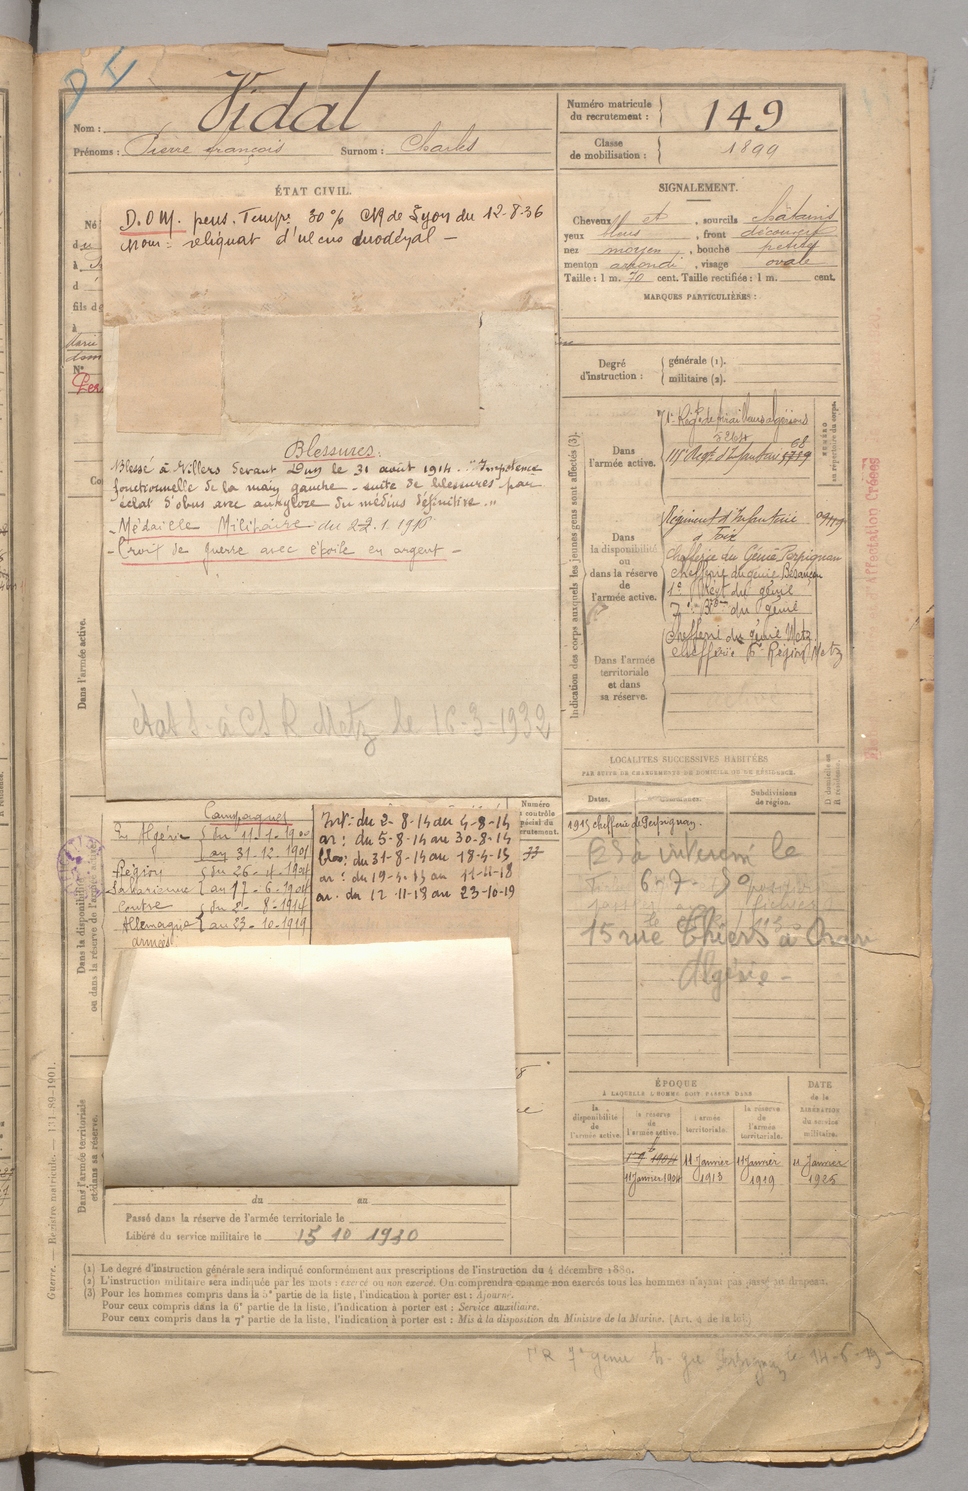 Nom : Vidal
Prénoms : Pierre françois Surnom : Charles
Numéro matricule du recrutement : 149
Classe de mobilisation : 1899
ÉTAT CIVIL.
D.O M. pens. Temp. 30 % CR de Lyon du 12-8-36
reliquat d'ulcus duodénal —
Blessures :
Blessé à Villers devant Dun le 31 août 1914. "Impotence
fonctionnelle de la main gauche - suite de blessures par
éclat d'obus avec ankylose du médius définitive. "
- Médaille Militaire du 1.1918
- Croix de guerre avec étoile en argent -
à CS R Metz le 16-3-1932
Dans l'armée active.
Campagnes
En Algérie du 11-1-1900
au 31-12-1901
Région du 26-4-1904
Saharienne au 17-6-1904
Contre du 2-8-1914
Allemagne au 23-10-1919
Int : du 2-8-14 au 4-8-14
ar : du 5-8-14 au 30-8-14
du 31-8-14 au 18-4-15
ar : du 19-4-15 au 11-11-18
ar. du 12-11-18 au 23-10-19
Dans la disponibilité
ou dans la réserve de l'armée active.
Dans l'armée territoriale
et dans sa réserve.
du au
Passé dans la réserve de l'armée territoriale le
Libéré du service militaire le 15 10 1930
SIGNALEMENT.
Cheveux et , sourcils châtains
yeux bleus , front découvert
nez moyen , bouche petite
menton arrondi , visage ovale
Taille : 1 m. 70 cent. Taille rectifiée : 1 m. cent.
MARQUES PARTICULIÈRES :
Degré d'instruction : générale (1).
militaire (2).
Indication des corps auxquels les jeunes gens sont affectés (3).
Dans l'armée active.
1er Régt de tirailleurs algériens
Régt d'Infanterie
NUMÉRO au répertoire du corps.
Dans la disponibilité ou dans la réserve de l'armée active.
Régiment d'Infanterie
chefferie du Génie Perpignan
chefferie du génie Besançon
1er Régt du génie
7e du génie
Dans l'armée territoriale et dans sa réserve.
chefferie du génie Metz
chefferie 6e Région Metz
LOCALITÉS SUCCESSIVES HABITÉES
PAR SUITE DE CHANGEMENTS DE DOMICILE OU DE RÉSIDENCE.
Dates. Communes. Subdivisions de région. D domicile ou R résidence.
1915 chefferie de Perpignan.
15 rue Thiers à Oran
Algérie -
ÉPOQUE
À LAQUELLE L'HOMME DOIT PASSER DANS
la disponibilité de l'armée active. la réserve de l'armée active. l'armée territoriale. la réserve de l'armée territoriale. DATE de la LIBÉRATION du service militaire.
11 Janvier 1904 11 Janvier 1913 11 Janvier 1919 11 Janvier 1925
(1) Le degré d'instruction générale sera indiqué conformément aux prescriptions de l'instruction du 4 décembre 1889.
(2) L'instruction militaire sera indiquée par les mots : exercé ou non exercé. On comprendra comme non exercés tous les hommes n'ayant pas passé au drapeau.
(3) Pour les hommes compris dans la 5e partie de la liste, l'indication à porter est : Ajourné.
Pour ceux compris dans la 6e partie de la liste, l'indication à porter est : Service auxiliaire.
Pour ceux compris dans la 7e partie de la liste, l'indication à porter est : Mis à la disposition du Ministre de la Marine. (Art. 4 de la loi.)
Guerre. — Registre matricule. — 131-89-1901.